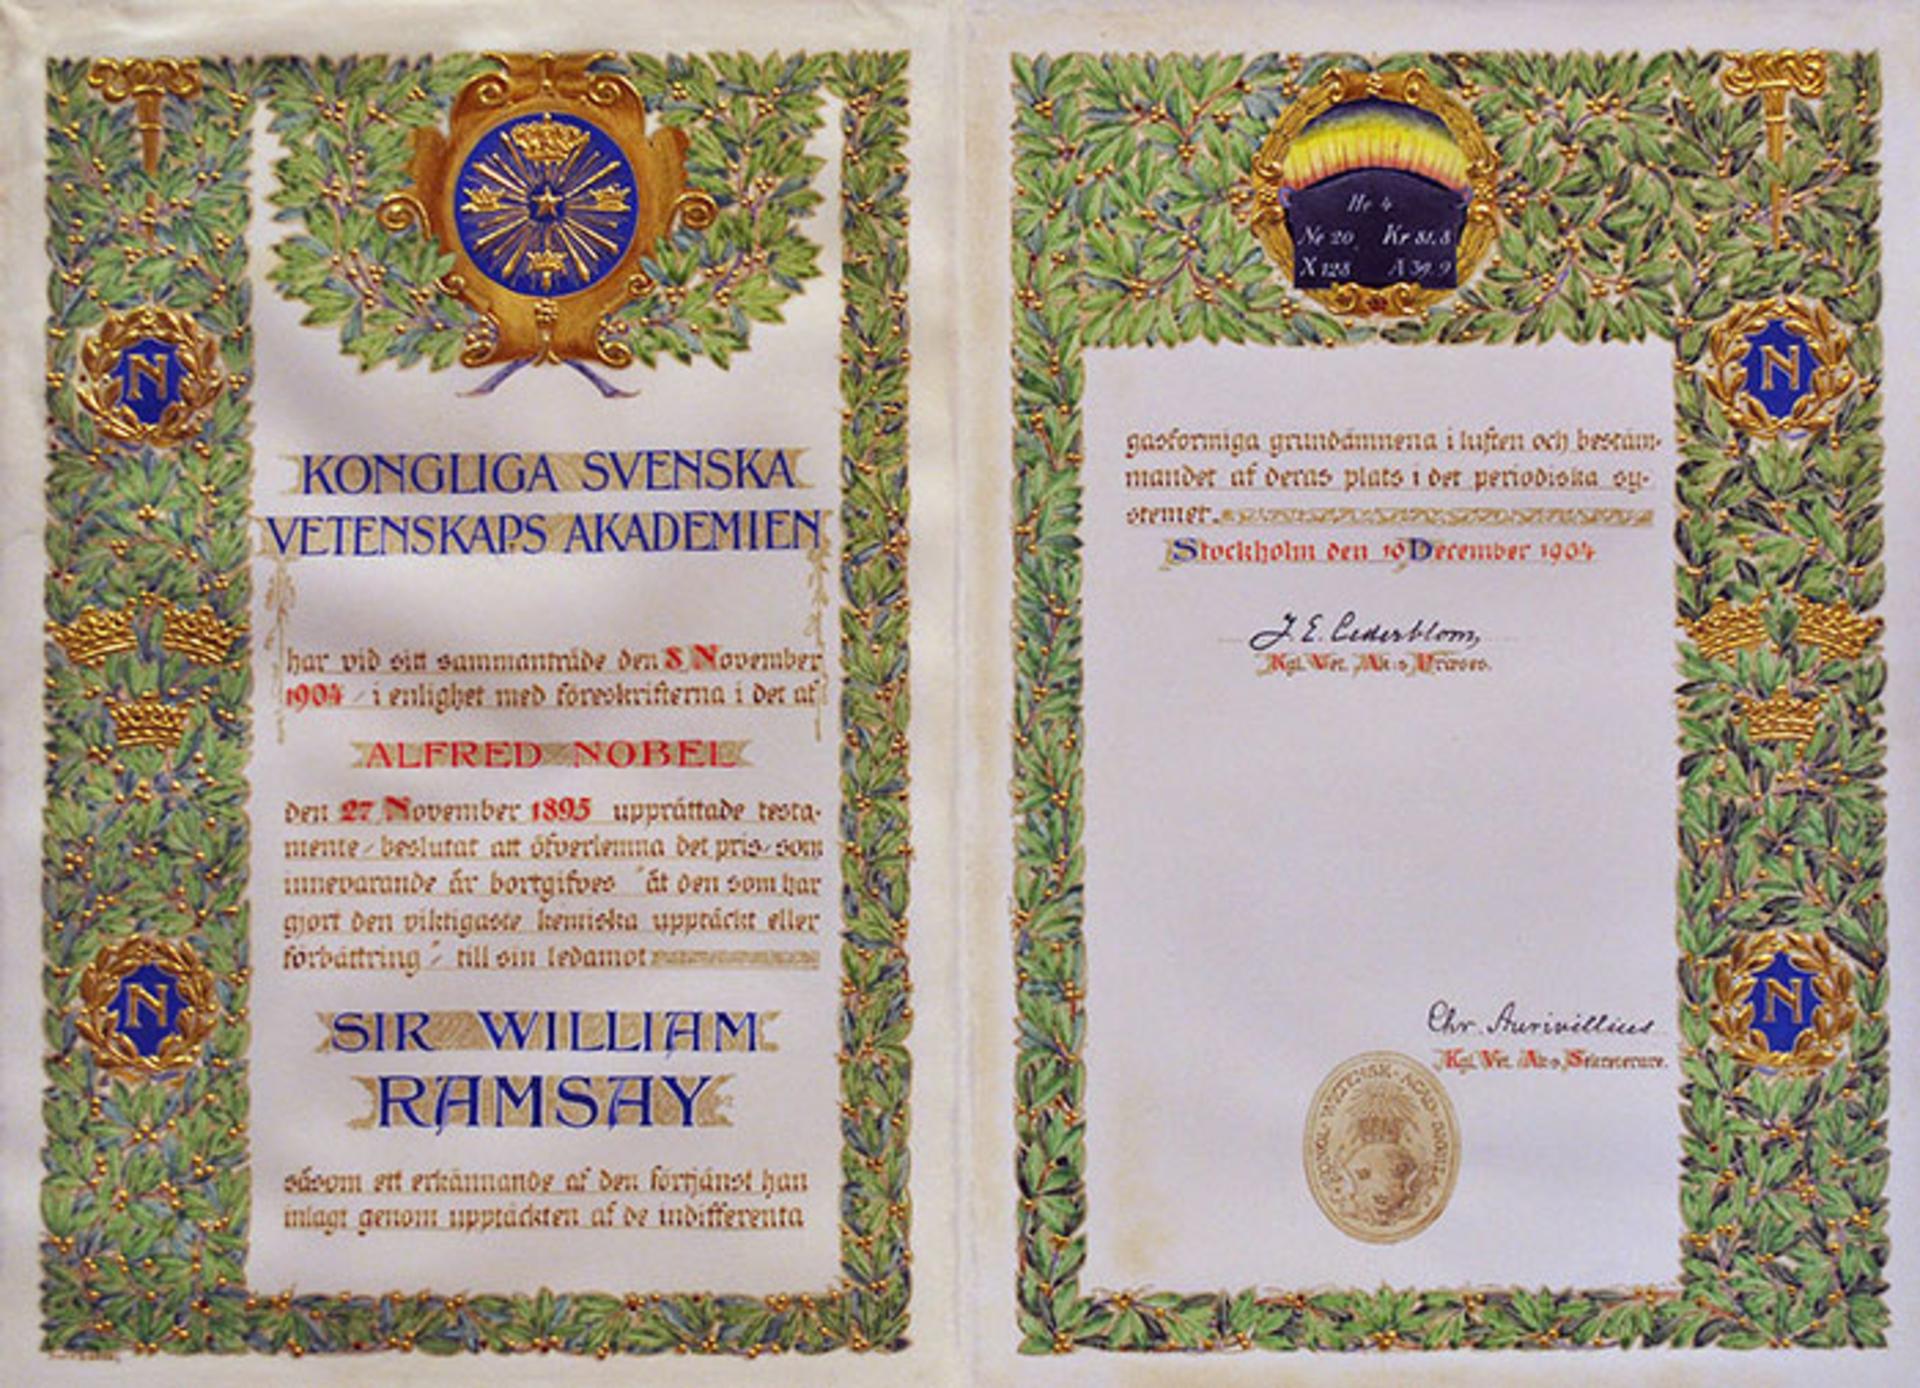 N
KONGLIGA SVENSKA
VETENSKAPS AKADEMIEN
har vid sitt sammanträde den 8 November
1904 i enlighet med föreskrifterna i det af
ALFRED NOBEL
den 27 November 1895 upprättade testa-
mente beslutat att öfverlemna det pris som
innevarande år bortgifves "åt den som har
gjort den viktigaste kemiska upptäckt eller
förbättring" till sin ledamot
N
SIR WILLIAM
RAMSAY
såsom ett erkännande af den förtjänst han
inlagt genom upptäckten af de indifferenta
He 4
Ne 20 Kr 81.8
X 128 A 39.9
N
gasformiga grundämnena i luften och bestäm-
mandet af deras plats i det periodiska sy-
stemet.
Stockholm den 10 December 1904
J. E. Cederblom,
Kgl. Vet. Ak:s Præses.
N
Chr. Aurivillius
Kgl. Vet. Ak:s Sekreterare.